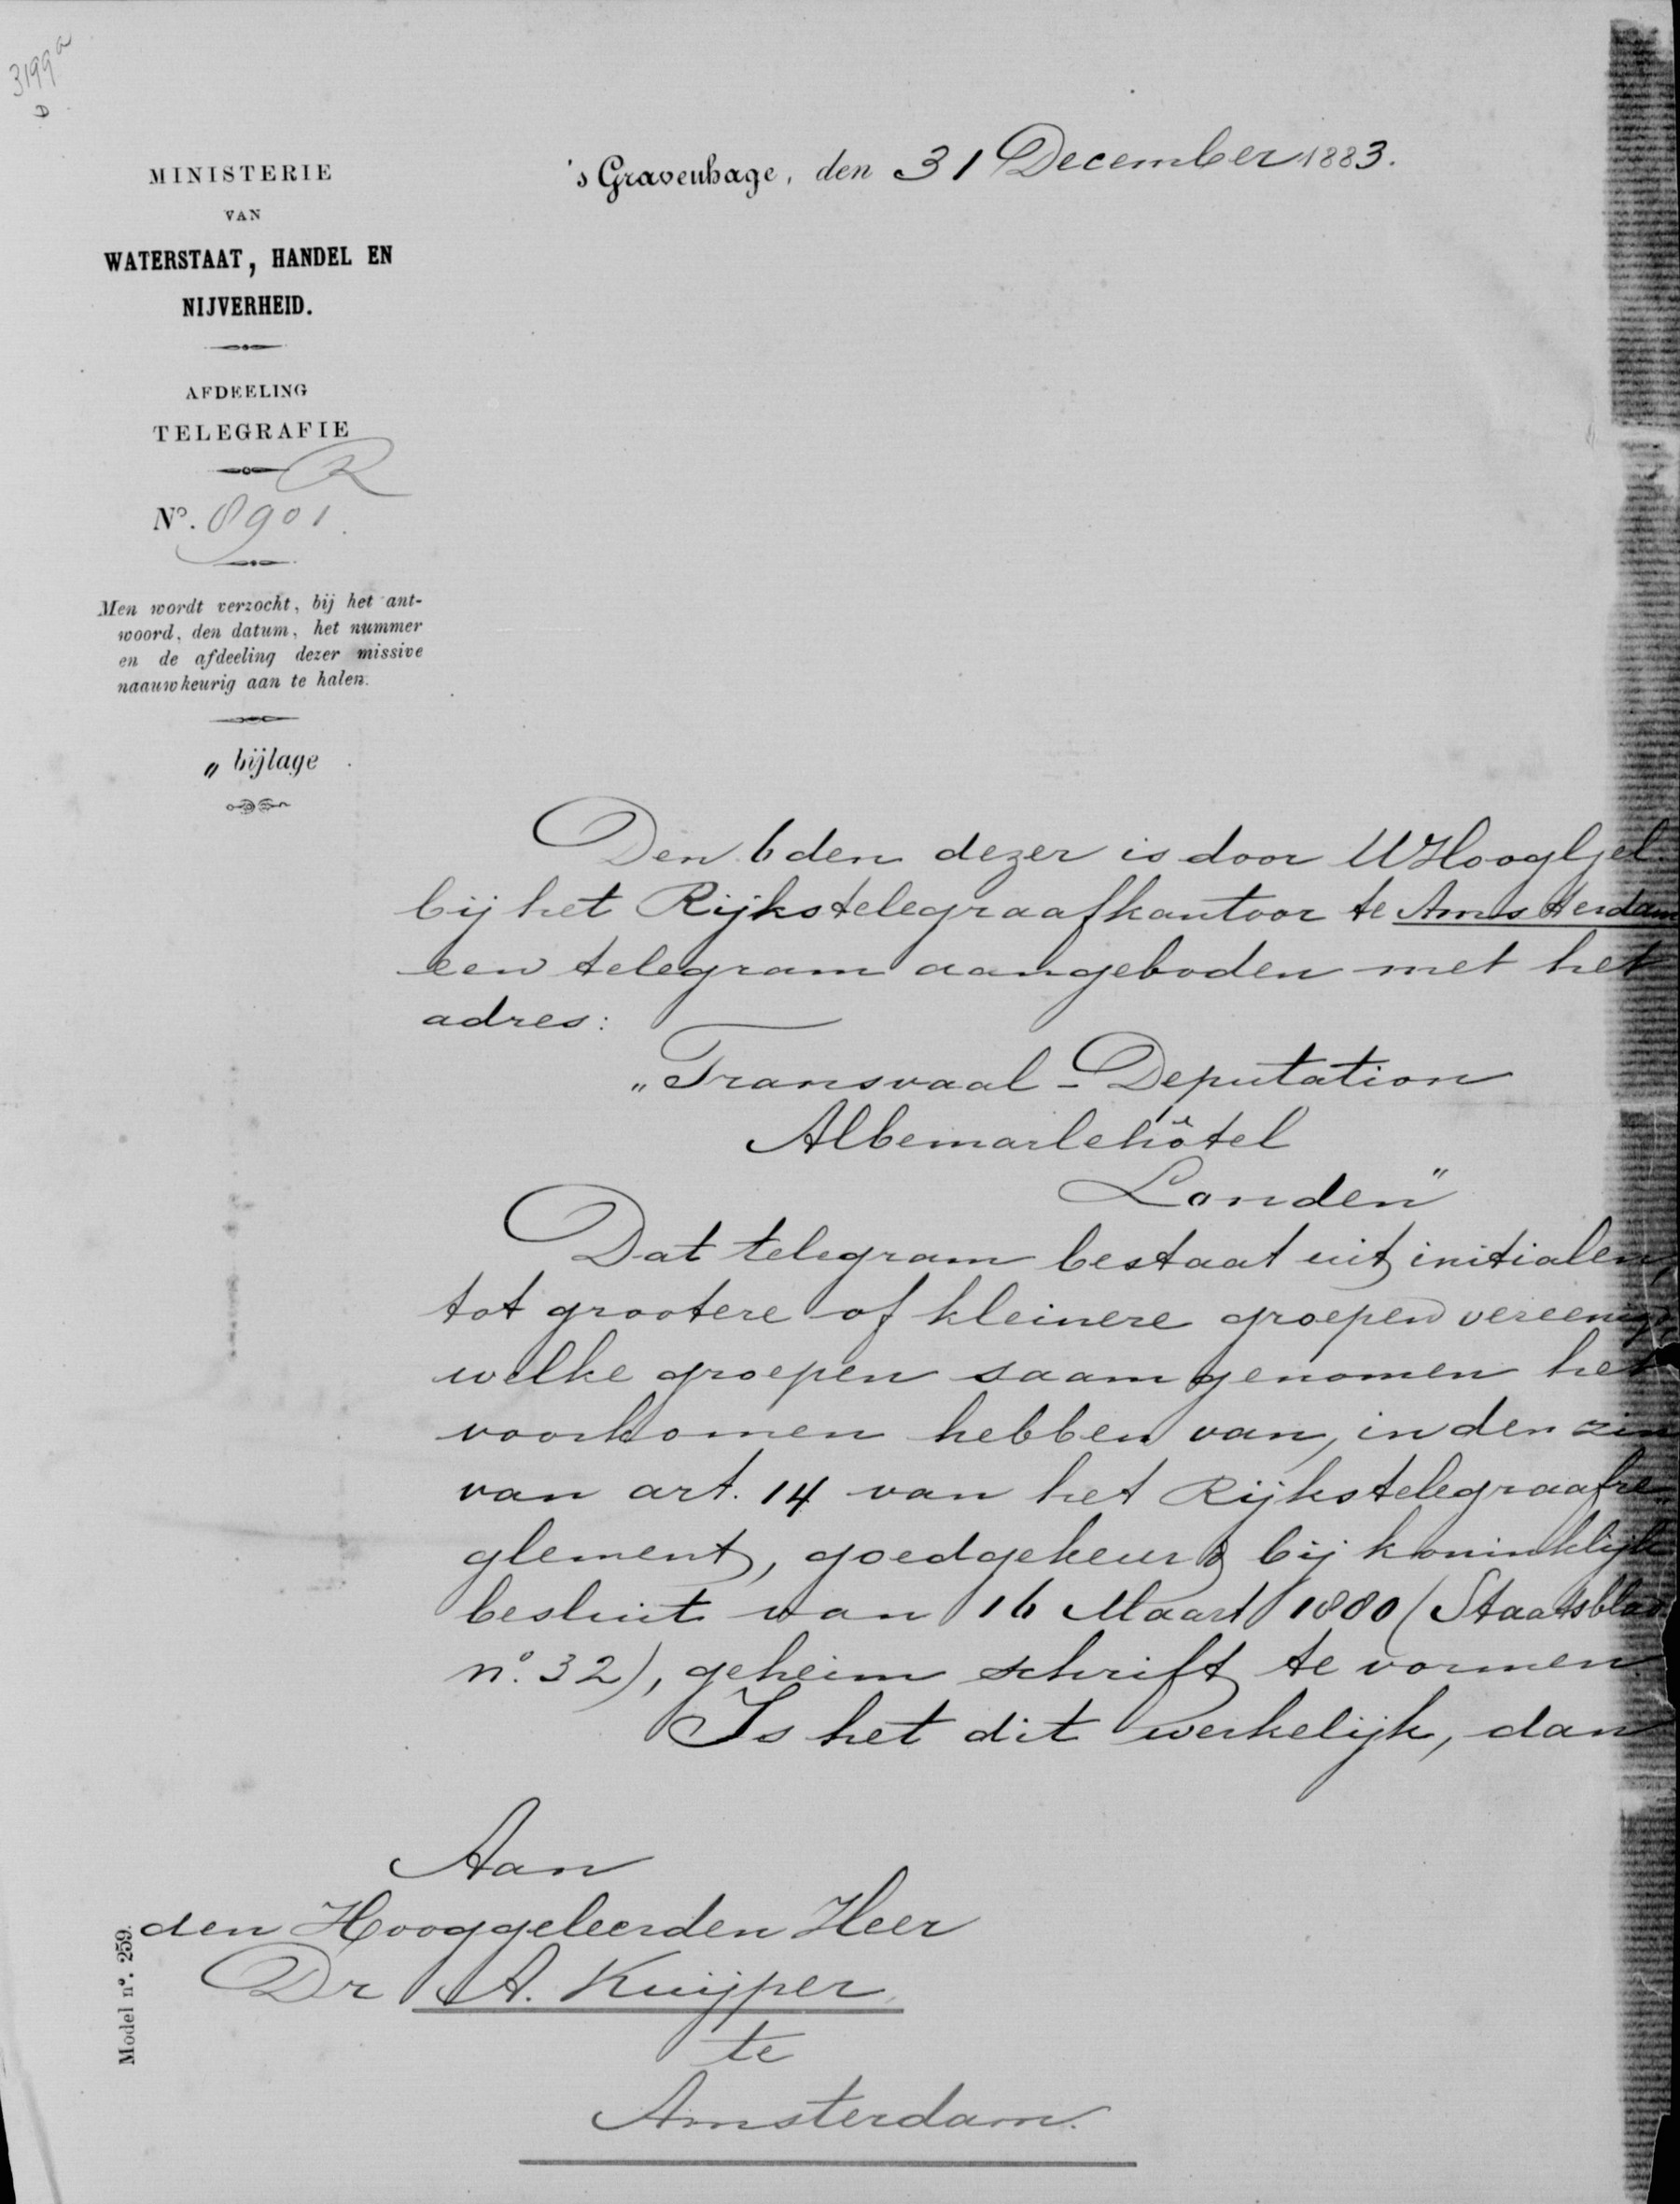 3199a
D
MINISTERIE
VAN
WATERSTAAT, HANDEL EN
NIJVERHEID.
AFDEELING
TELEGRAFIE
R
No. 8901.
Men wordt verzocht, bij het ant-
woord, den datum, het nummer
en de afdeeling dezer missive
naauwkeurig aan te halen.
„ bijlage
's Gravenhage, den 31 December 1883.
Den 6den dezer is door UHooglgel
bij het Rijkstelegraafkantoor te Amsterdam
een telegram aangeboden met het
adres:
„Transvaal-Deputation
Albemarlehôtel
Londen"
Dat telegram bestaat uit initialen,
tot grootere of kleinere groepen vereenigd
welke groepen saamgenomen het
voorkomen hebben van, in den zin
van art. 14 van het Rijkstelegraafre
glement, goedgekeurd bij koninklijk
besluit van 16 Maart 1880 (Staatsblad
no. 32), geheim schrift te vormen.
Is het dit werkelijk, dan
Aan
den Hooggeleerden Heer
Dr A. Kuijper,
te
Amsterdam.
Model no. 259.